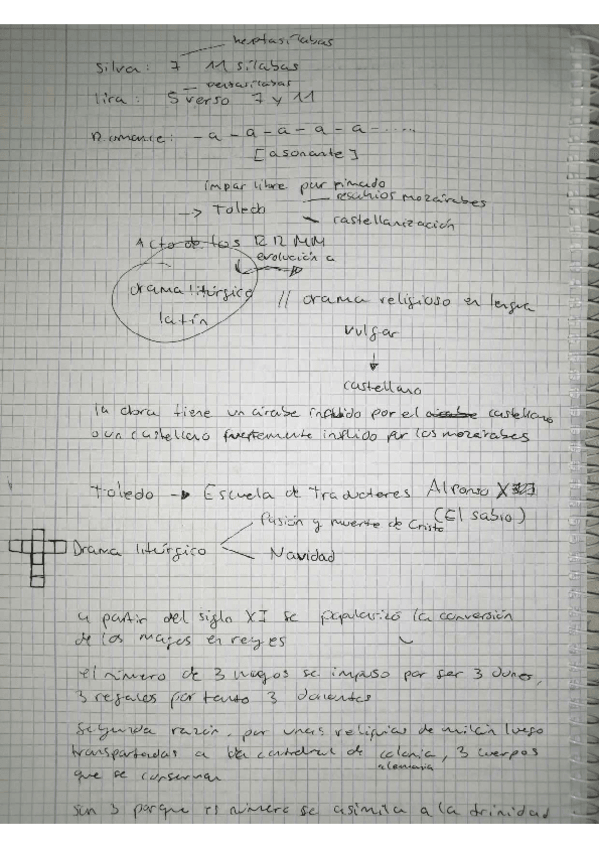 heptasílabas
silva: 7 11 sílabas
heptasílabas
lira: 5 verso 7 y 11
Romance: - a - a - a - a - a - .....
[asonante]
impar libre par rimado
-> Toledo resabios mozárabes
castellanización
Acto de los RR MM
evolución a
drama litúrgico // drama religioso en lengua
latín vulgar
castellano
la obra tiene un árabe influido por el castellano
o un castellano fuertemente influido por los mozárabes
Toledo -> Escuela de Traductores Alfonso X
(El sabio)
Pasión y muerte de Cristo
Drama litúrgico
Navidad
a partir del siglo XI se popularizó la conversión
de los magos en reyes
el número de 3 magos se impuso por ser 3 dones,
3 regalos por tanto 3 donantes
Segunda razón, por unas reliquias de milán luego
transportadas a la catedral de colonia, 3 cuerpos
alemania
que se conservan
son 3 porque el número se asimila a la trinidad